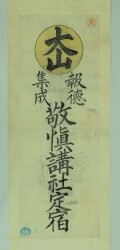 大山
報德
集成
敬愼講社定宿